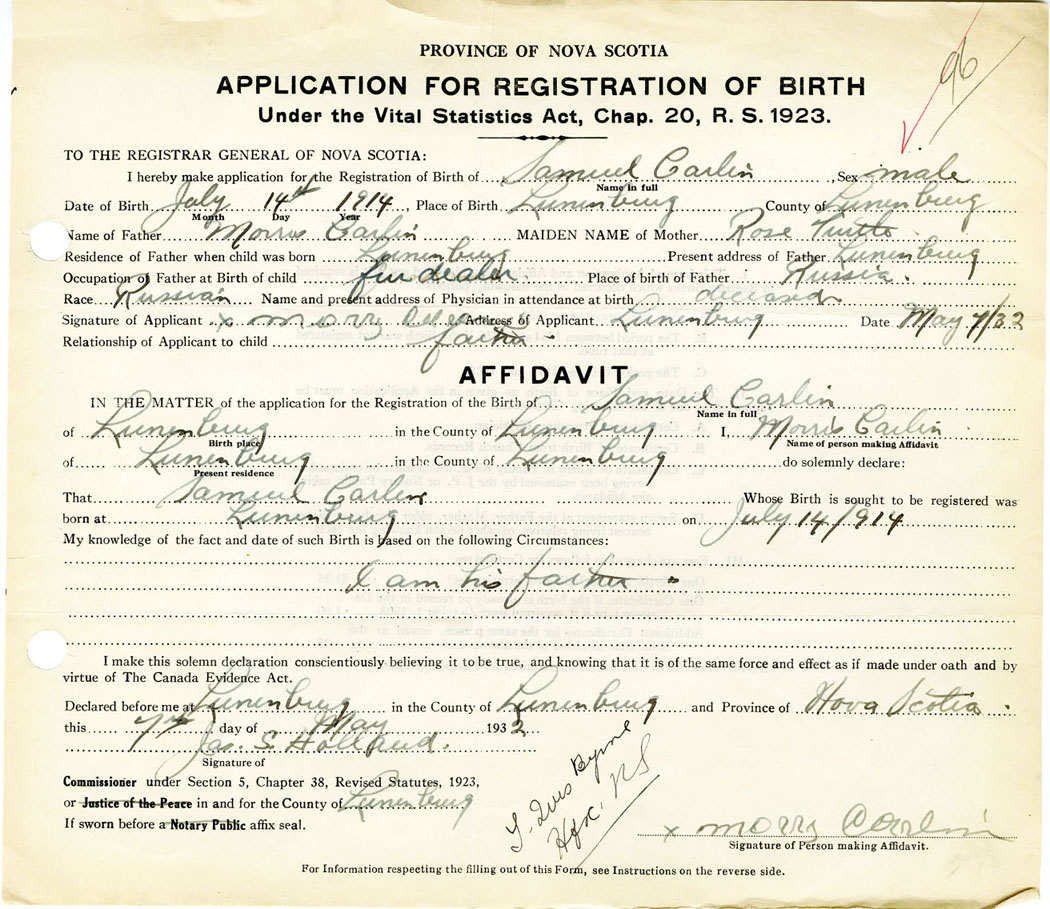 96
PROVINCE OF NOVA SCOTIA
APPLICATION FOR REGISTRATION OF BIRTH
Under the Vital Statistics Act, Chap. 20, R. S. 1923.
TO THE REGISTRAR GENERAL OF NOVA SCOTIA:
I hereby make application for the Registration of Birth of Samuel Carlin, Sex male
Name in full
Date of Birth July 14th 1914, Place of Birth Lunenburg County of Lunenburg
Month Day Year
Name of Father Morris Carlin MAIDEN NAME of Mother Rose
Residence of Father when child was born Lunenburg Present address of Father Lunenburg
Occupation of Father at Birth of child fur dealer Place of birth of Father Russia.
Race Russian Name and present address of Physician in attendance at birth deceased
Signature of Applicant x morrz Address of Applicant Lunenburg Date May 7/32
Relationship of Applicant to child father
AFFIDAVIT
IN THE MATTER of the application for the Registration of the Birth of Samuel Carlin
Name in full
of Lunenburg in the County of Lunenburg I, Morris Carlin
Birth place Name of person making Affidavit
of Lunenburg in the County of Lunenburg do solemnly declare:
Present residence
That Samuel Carlin Whose Birth is sought to be registered was
born at Lunenburg on July 14/914
My knowledge of the fact and date of such Birth is based on the following Circumstances:
I am his father
I make this solemn declaration conscientiously believing it to be true, and knowing that it is of the same force and effect as if made under oath and by
virtue of The Canada Evidence Act.
Declared before me at Lunenburg in the County of Lunenburg and Province of Nova Scotia.
this 7th day of May 1932
Jas. S. Holland.
Signature of
Commissioner under Section 5, Chapter 38, Revised Statutes, 1923,
or Justice of the Peace in and for the County of Lunenburg
If sworn before a Notary Public affix seal.
Byrne
Hfx. NS
x morrz Carlin
Signature of Person making Affidavit.
For Information respecting the filling out of this Form, see Instructions on the reverse side.